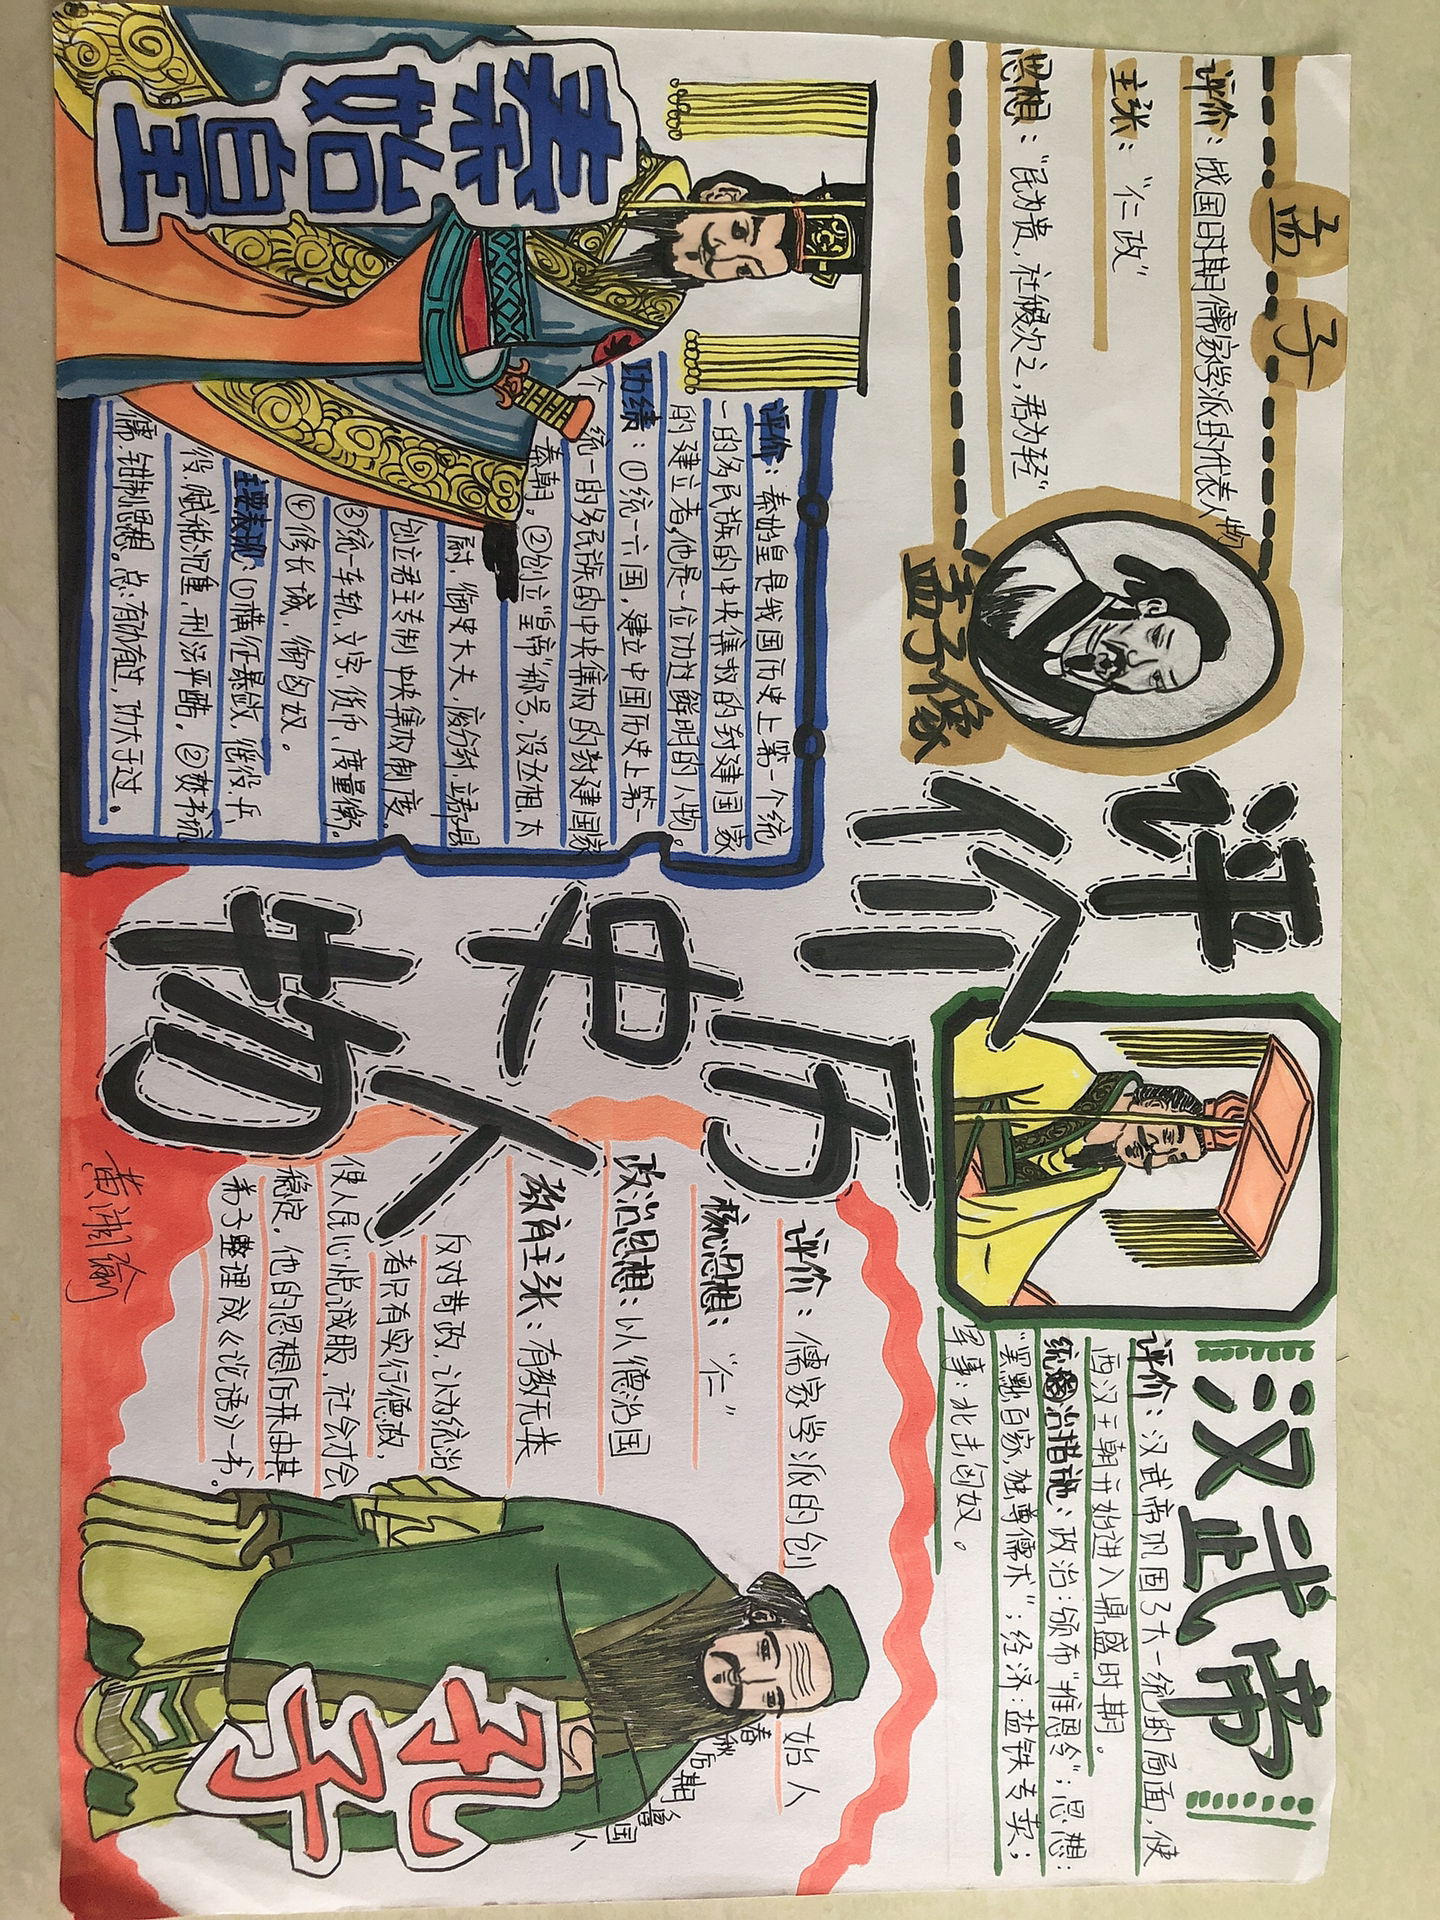 孟子
评价：战国时期儒家学派的代表人物
主张：“仁政”
思想：“民为贵，社稷次之，君为轻”
孟子像
评价
历史人物
秦始皇
评价：秦始皇是我国历史上第一个统
一的多民族的中央集权的封建国家
的建立者，他是一位功过鲜明的人物。
功绩：①统一六国，建立中国历史上第一
个统一的多民族的中央集权的封建国家
秦朝。②创立“皇帝”称号，设丞相、太
尉、御史大夫，废分封，立郡县
创立君主专制中央集权制度。
③统一车轨、文字、货币、度量衡。
④修长城，御匈奴。
主要表现：①横征暴敛，徭役兵
役，赋税沉重，刑法严酷。②焚书坑
儒，钳制思想。总：有功有过，功大于过。
汉武帝
评价：汉武帝巩固了大一统的局面，使
西汉王朝开始进入鼎盛时期。
统治措施：政治：颁布“推恩令”；思想：
“罢黜百家，独尊儒术”；经济：盐铁专卖；
军事：北击匈奴。
孔子
评价：儒家学派的创始人
春秋后期鲁国人
核心思想：“仁”
政治思想：以德治国
教育主张：有教无类
反对苛政，认为统治
者只有实行德政，
使人民心悦诚服，社会才会
稳定。他的思想后来由其
弟子整理成《论语》一书。